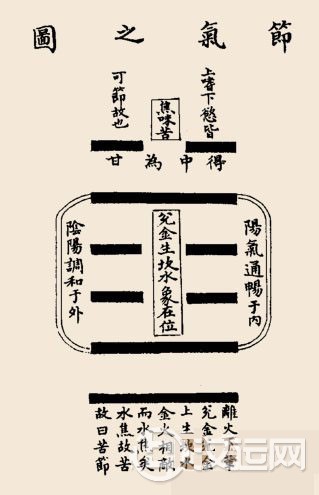 節氣之圖
上嗜下慾皆
焦味苦
可節故也
得中為甘
陽氣通暢于內
兌金生坎水象在位
陰陽調和于外
離火下
兌金
上生
金火相敵
而水焦矣
水焦故苦
故曰苦節